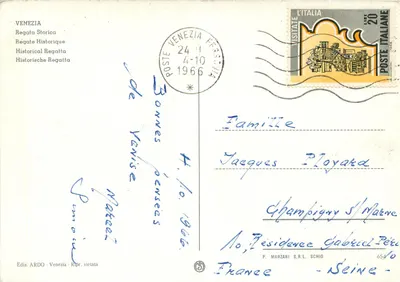 VENEZIA
Regata Storica
Régate Historique
Historical Regatta
Historische Regatta
POSTE VENEZIA FERROVIA
24
4-10
1966
L'ITALIA
20
POSTE ITALIANE
4.10.1966
Bonnes pensées
de Venise
Famille
Jacques Ployard
Champigny s/ Marne
10, Résidence Gabriel Péri
France - Seine -
Ediz. ARDO - Venezia
P. MARZARI S.R.L. SCHIO